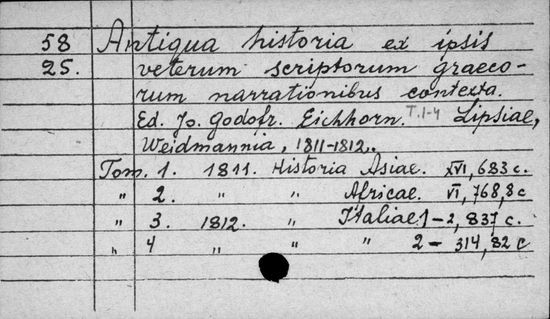 58 Antiqua historia ex ipsis
25. veterum scriptorum graeco-
rum narrationibus contexta.
Ed. Jo. Godofr. Eichhorn. T.1-4 Lipsiae,
Weidmannia, 1811-1812.
Tom. 1. 1811. Historia Asiae. XVI, 683 c.
„ 2. „ „ Africae. VI, 768, 8 c
„ 3. 1812. „ Italiae 1-2, 837 c.
„ 4 „ „ „ 2- 314, 82 c